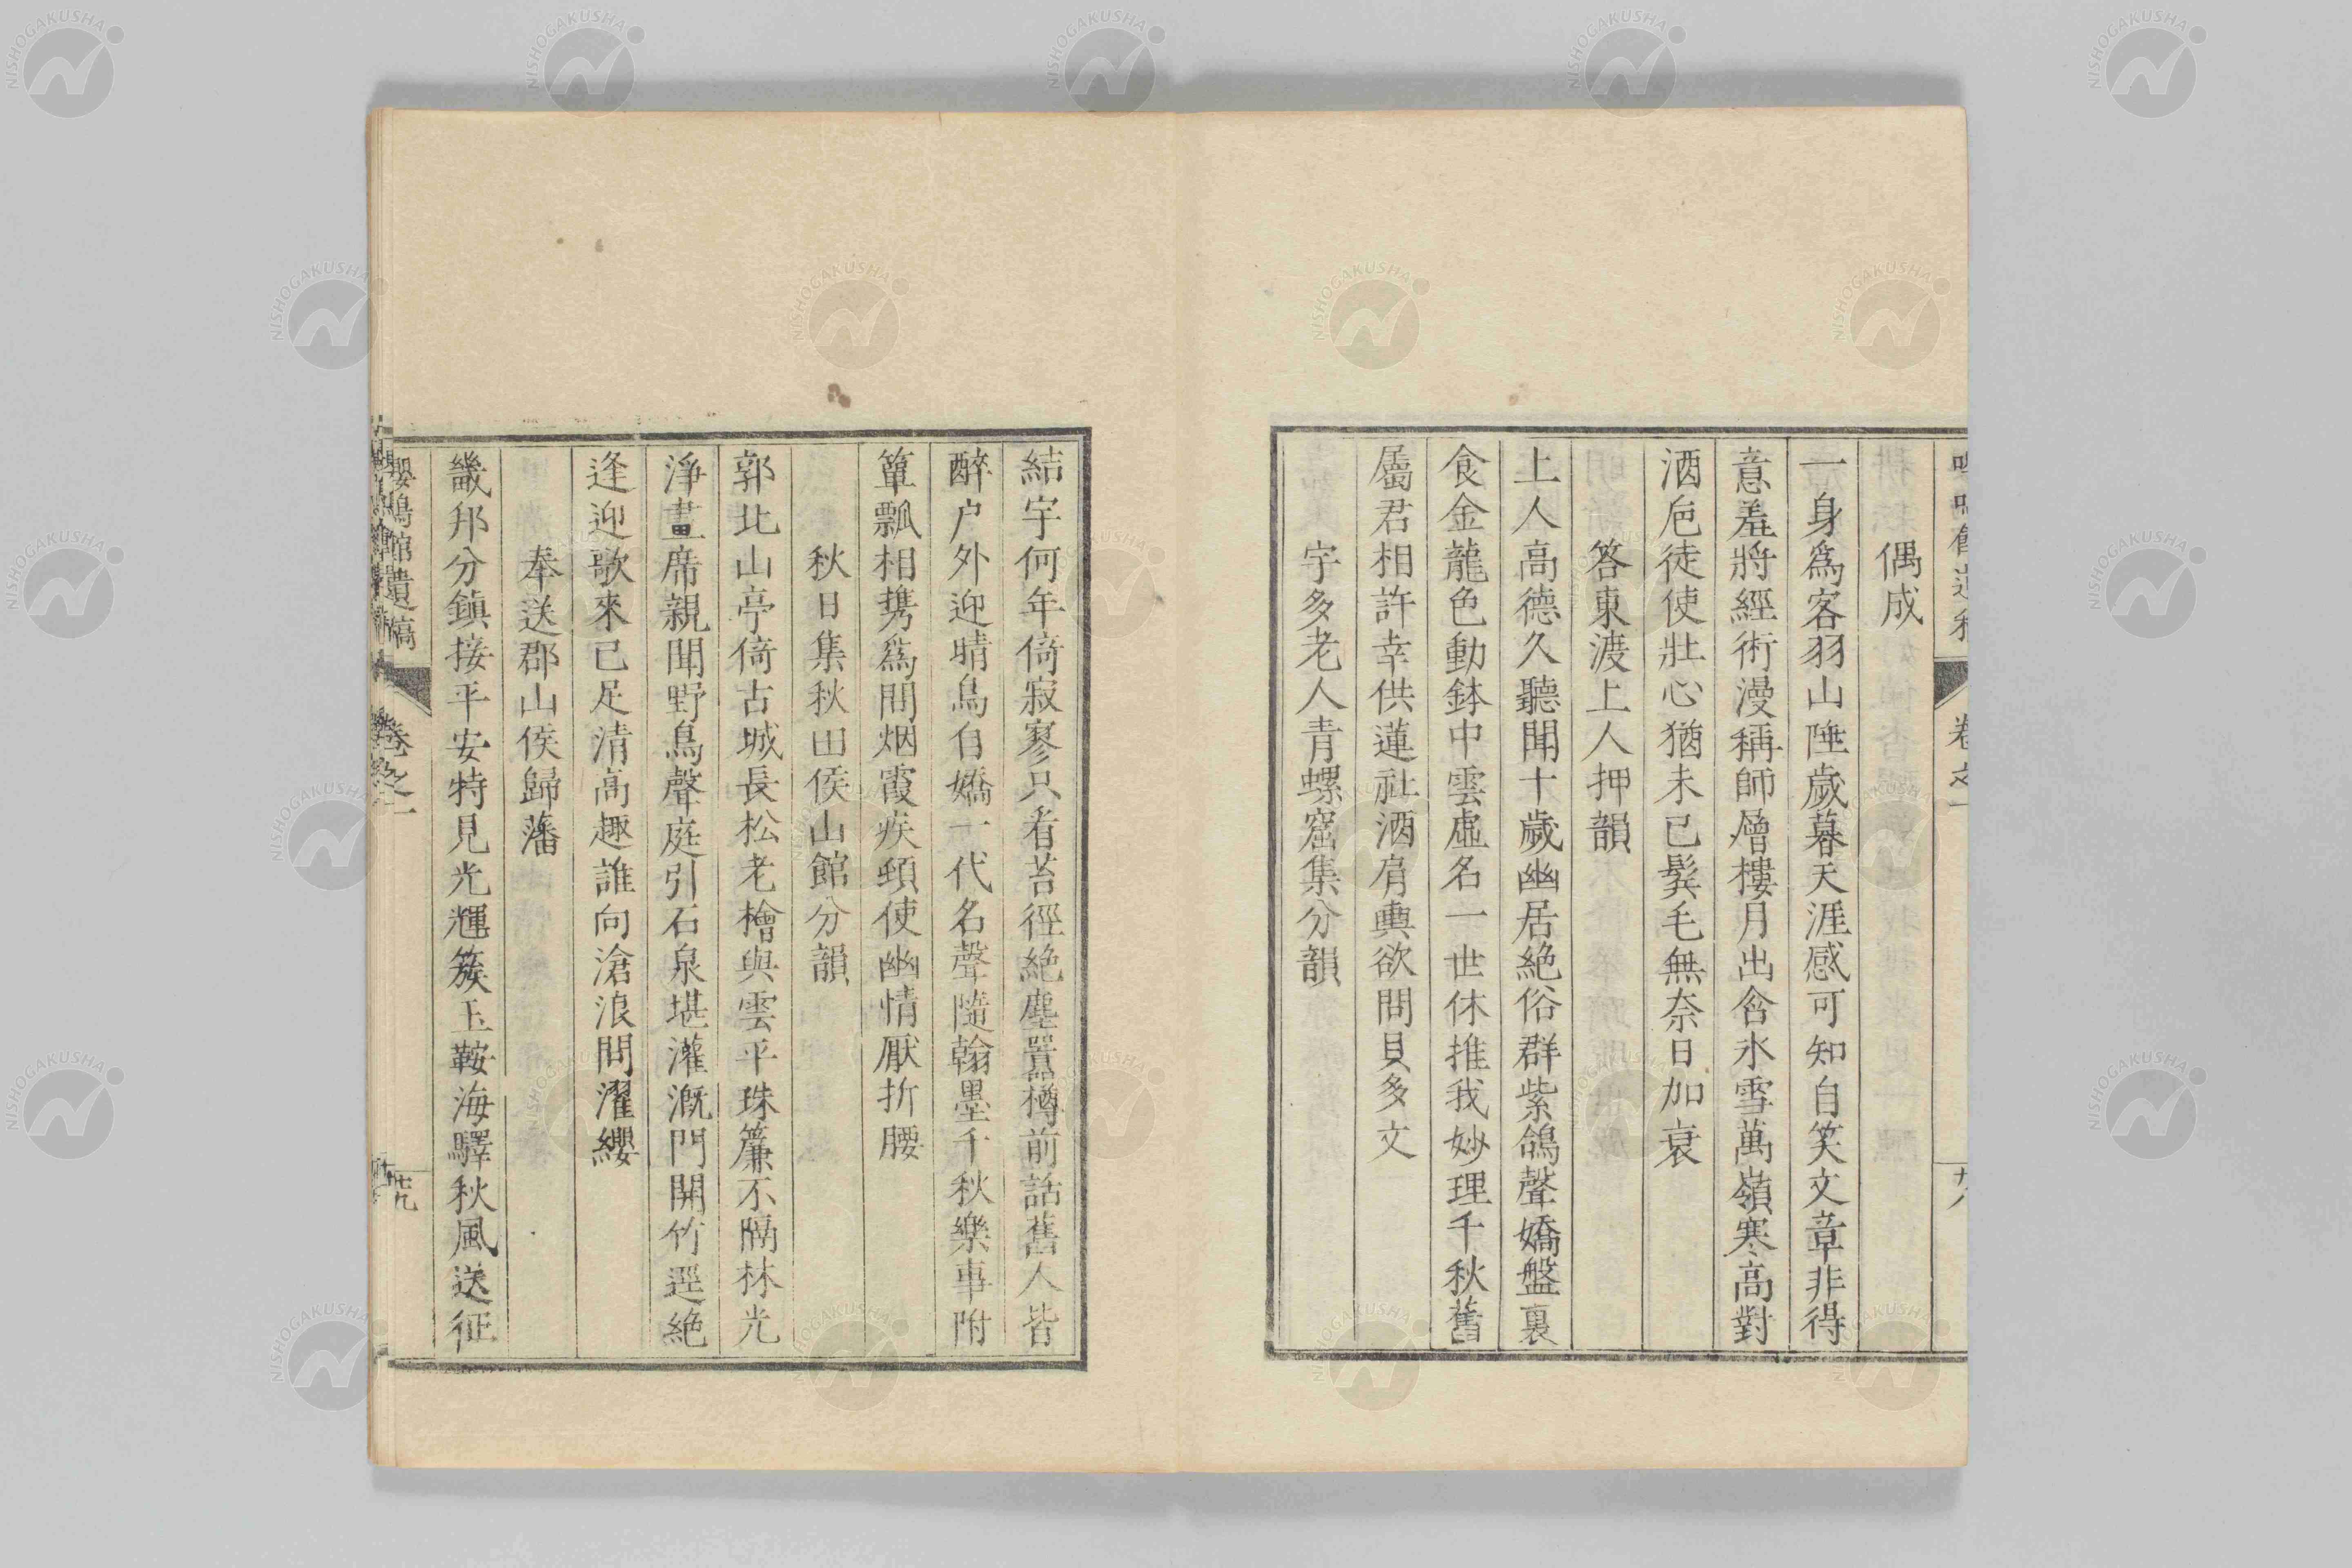 偶成
一身爲客羽山陲歲暮天涯感可知自笑文章非得
意羞將經術漫稱師層樓月出含氷雪萬嶺寒高對
酒巵徒使壯心猶未已鬂毛無奈日加衰
答東渡上人押韻
上人高德久聽聞十歲幽居絶俗群紫鴿聲嬌盤裏
食金龍色動鉢中雲虛名一世休推我妙理千秋舊
屬君相許幸供蓮社酒肩輿欲問貝多文
宇多老人青螺窟集分韻
卷之一
廿八
結宇何年倚寂寥只看苔徑絶塵囂樽前話舊人皆
醉户外迎晴鳥自嬌一代名聲隨翰墨千秋樂事附
簞瓢相携爲問烟霞疾頻使幽情厭折腰
秋日集秋田侯山館分韻
郭北山亭倚古城長松老檜與雲平珠簾不隔林光
淨畫席親聞野鳥聲庭引石泉堪灌漑門開竹逕絶
逢迎歌來已足清高趣誰向滄浪問濯纓
奉送郡山侯歸藩
畿邦分鎮接平安特見光輝簇玉鞍海驛秋風送征
嚶鳴館遺稿
卷之一
廿九
NISHOGAKUSHA